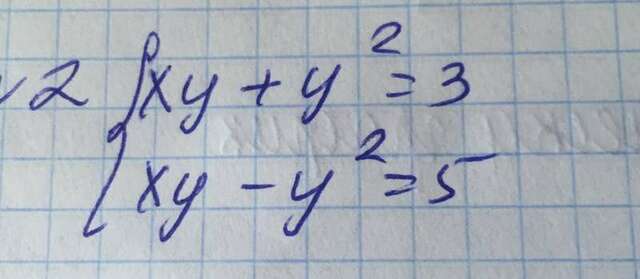 2 { xy + y² = 3
xy - y² = 5